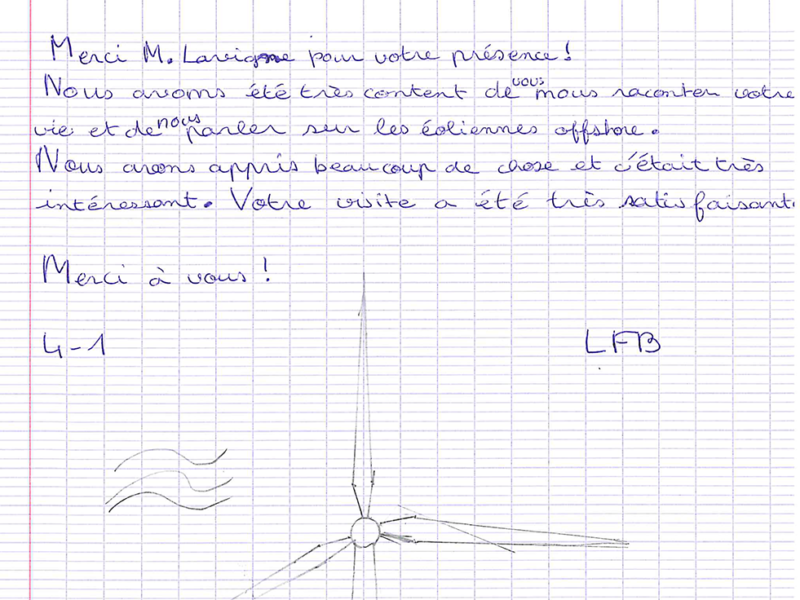 Merci M. Lavigne pour votre présence!
Nous avons été très content de vous nous raconter votre
vie et de nous parler sur les éoliennes offshore.
Nous avons appris beaucoup de chose et c'était très
intéressant. Votre visite a été très satisfaisant
Merci à vous!
4-1 LFB